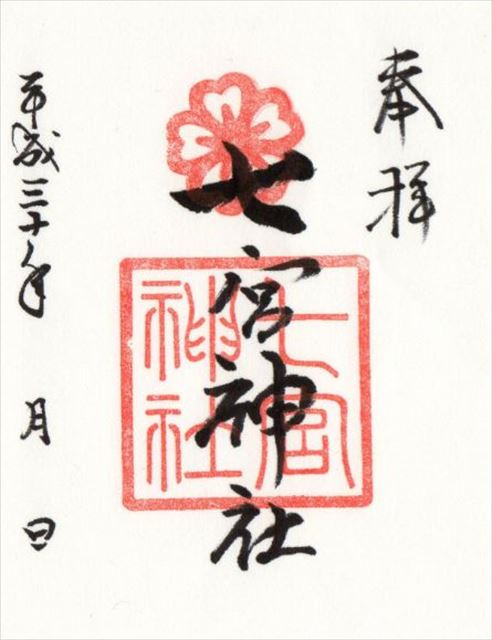 奉拝
七宮神社
七宮
神社
平成三十年 月 日